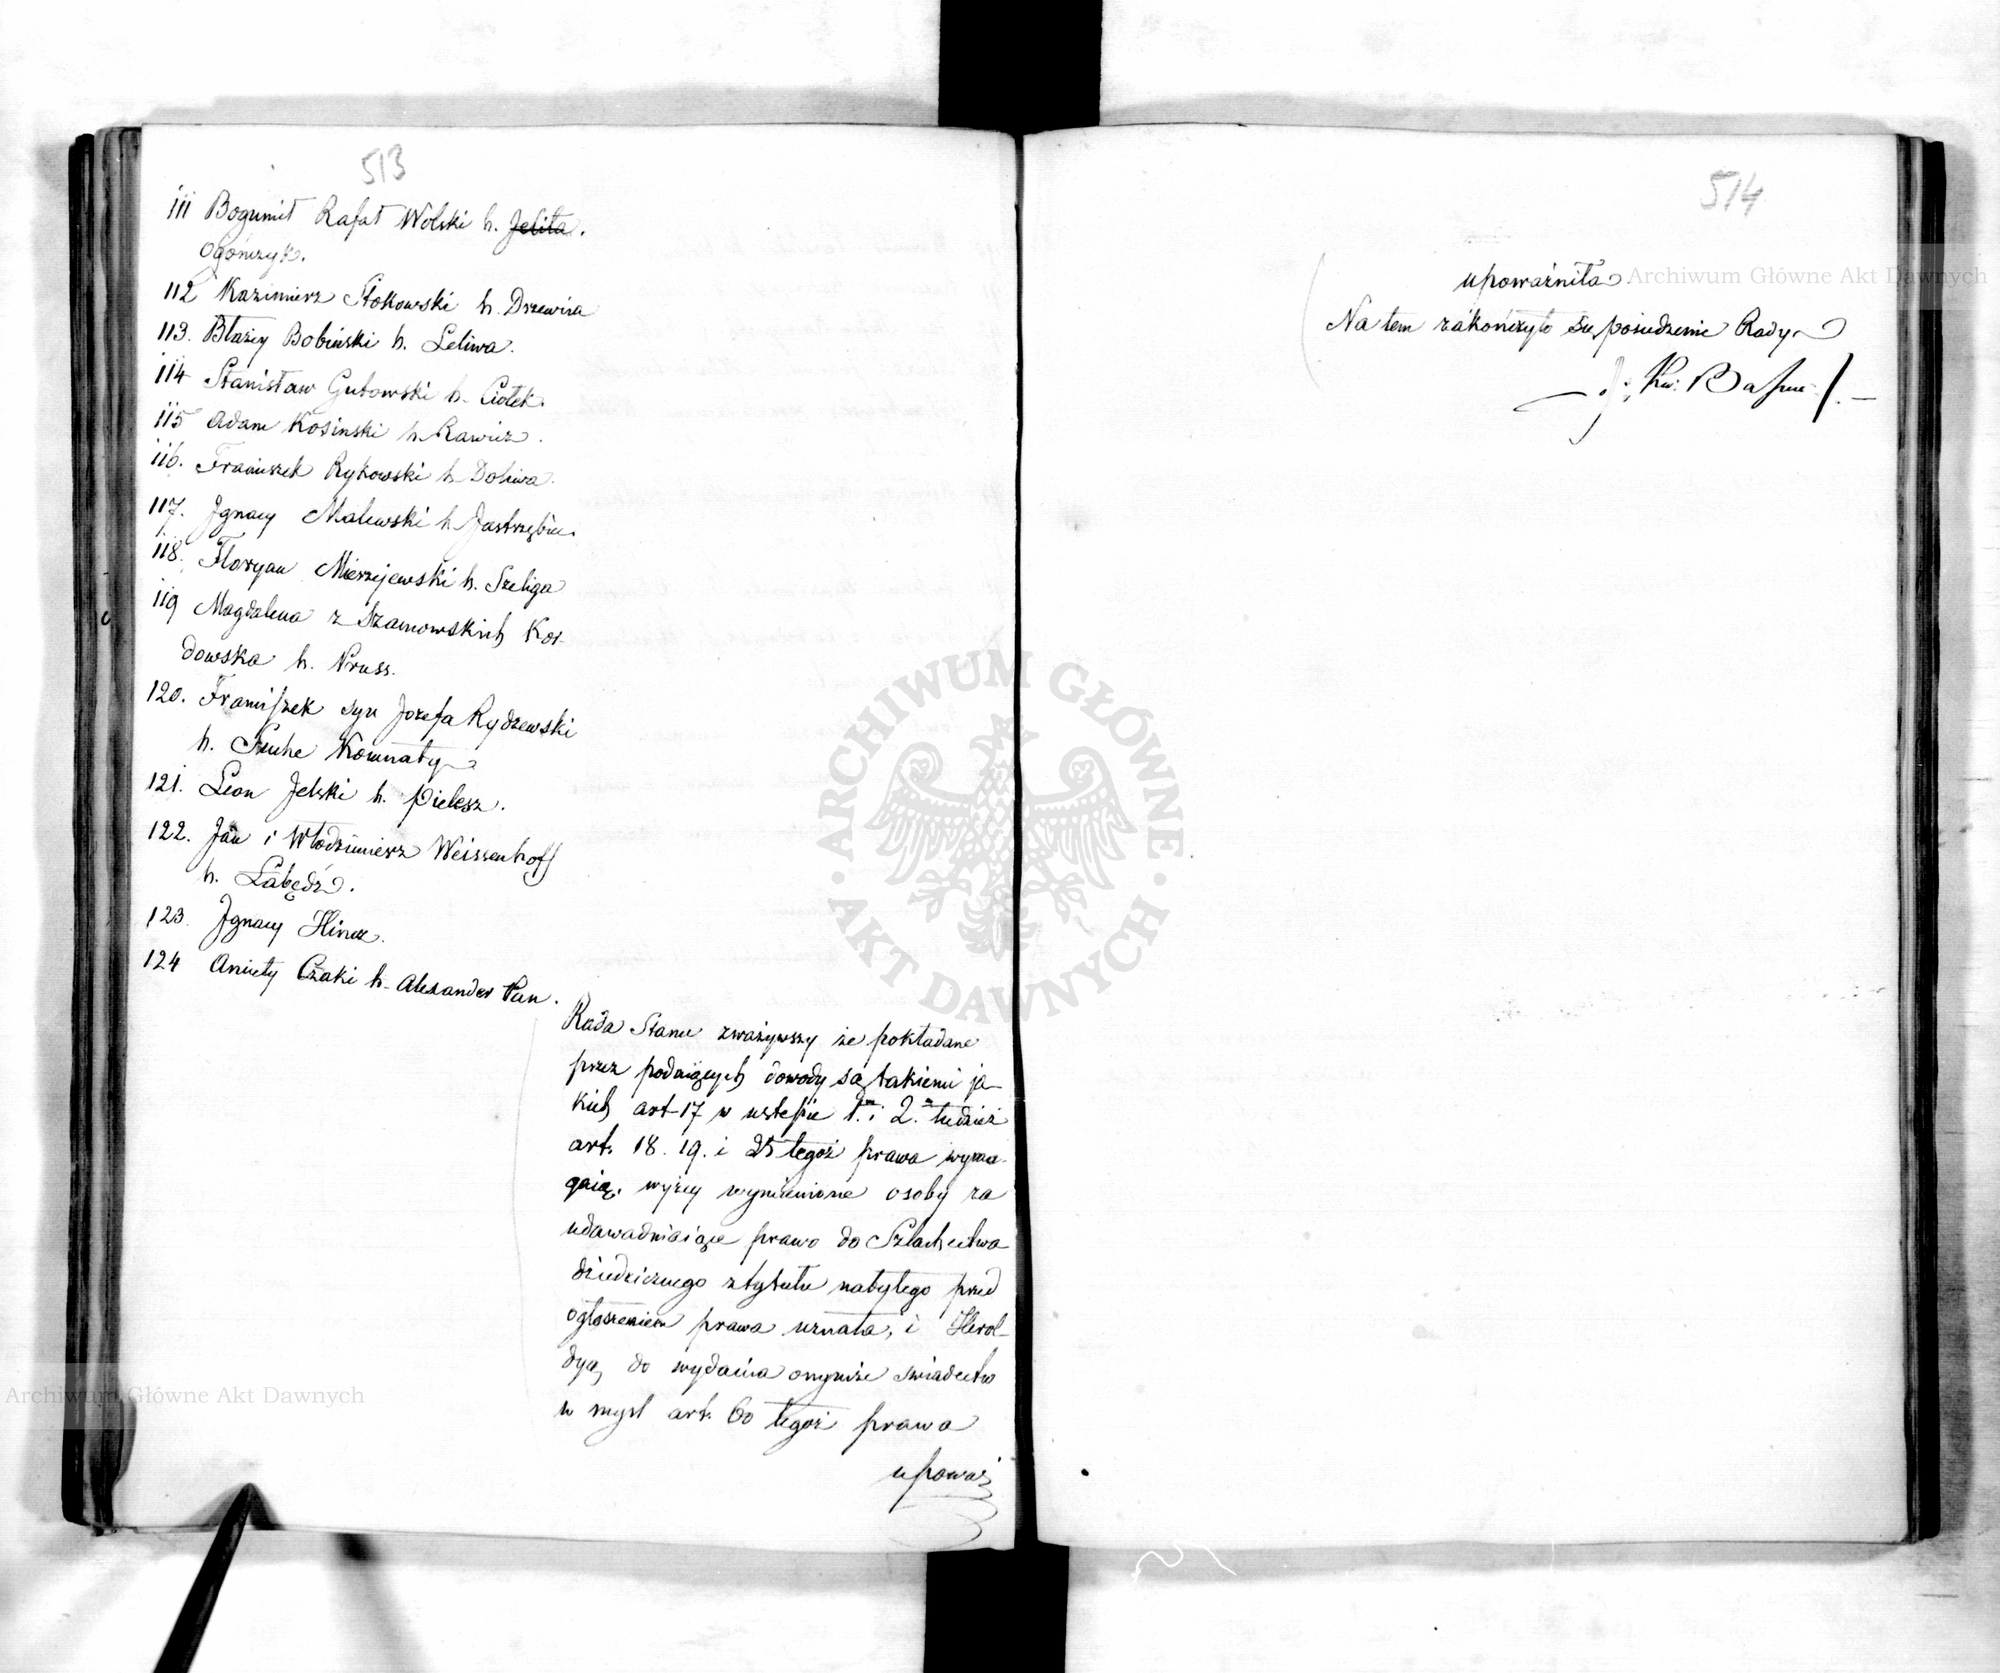 513
111 Bogumił Rafał Wolski h. Jelita.
Ogończyk.
112 Kazimierz Stokowski h. Drzewica
113. Błażey Bobiński h. Leliwa.
114 Stanisław Gutowski h. Ciołek.
115 Adam Kosinski h. Rawicz.
116. Franciszek Rykowski h. Doliwa.
117. Ignacy Malewski h. Jastrzębiec.
118. Floryan Mierzejewski h. Szeliga
119 Magdalena z Szamowskich Kor-
dowska h. Pruss.
120. Franciszek syn Jozefa Rydzewski
h. Suche Komnaty
121. Leon Jelski h. Pielesz.
122. Jan i Włodzimierz Weissenhoff
h. Łabędź.
123. Ignacy Hincz.
124 Anicety Czaki h. Alexander Pan.
Rada Stanu zważywszy że pokładane
przez podaiących dowody są takiemi ja-
kich art 17 w ustępie 1. i 2. tudzież
art. 18. 19. i 25 tegoż prawa wyma-
gaią, wyżey wymienione osoby za
udawadniaiące prawo do Szlachectwa
dziedzicznego z tytułu nabytego przed
ogłoszeniem prawa uznała, i Herol-
dyą do wydania onymże świadectw
w mysl art. 60 tegoż prawa
upoważ
514
upoważniła.
Na tem zakończyło się posiedzenie Rady
ARCHIWUM GŁÓWNE
AKT DAWNYCH
Archiwum Główne Akt Dawnych
Archiwum Główne Akt Dawnych